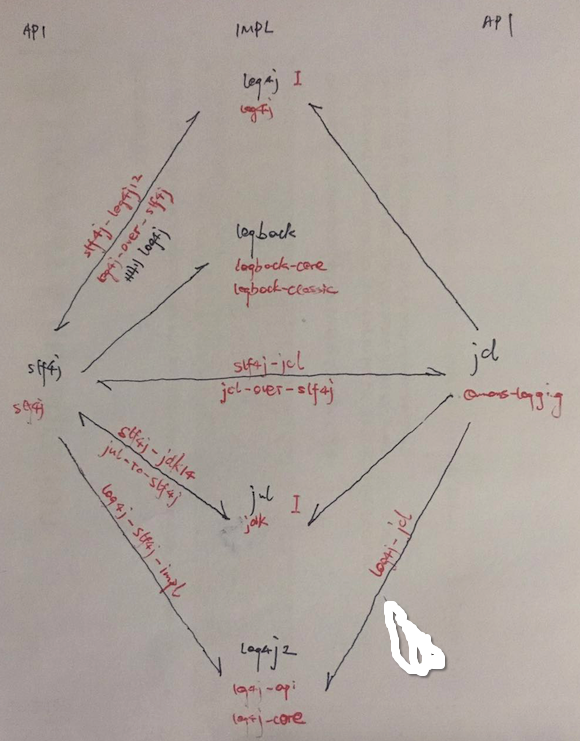 API
IMPL
API
log4j I
log4j
slf4j-log4j12
log4j-over-slf4j
log4j
logback
logback-core
logback-classic
slf4j
slf4j
slf4j-jcl
jcl-over-slf4j
jcl
slf4j-jdk14
jul-to-slf4j
jul I
jdk
log4j-slf4j-impl
log4j-jcl
log4j2
log4j-api
log4j-core